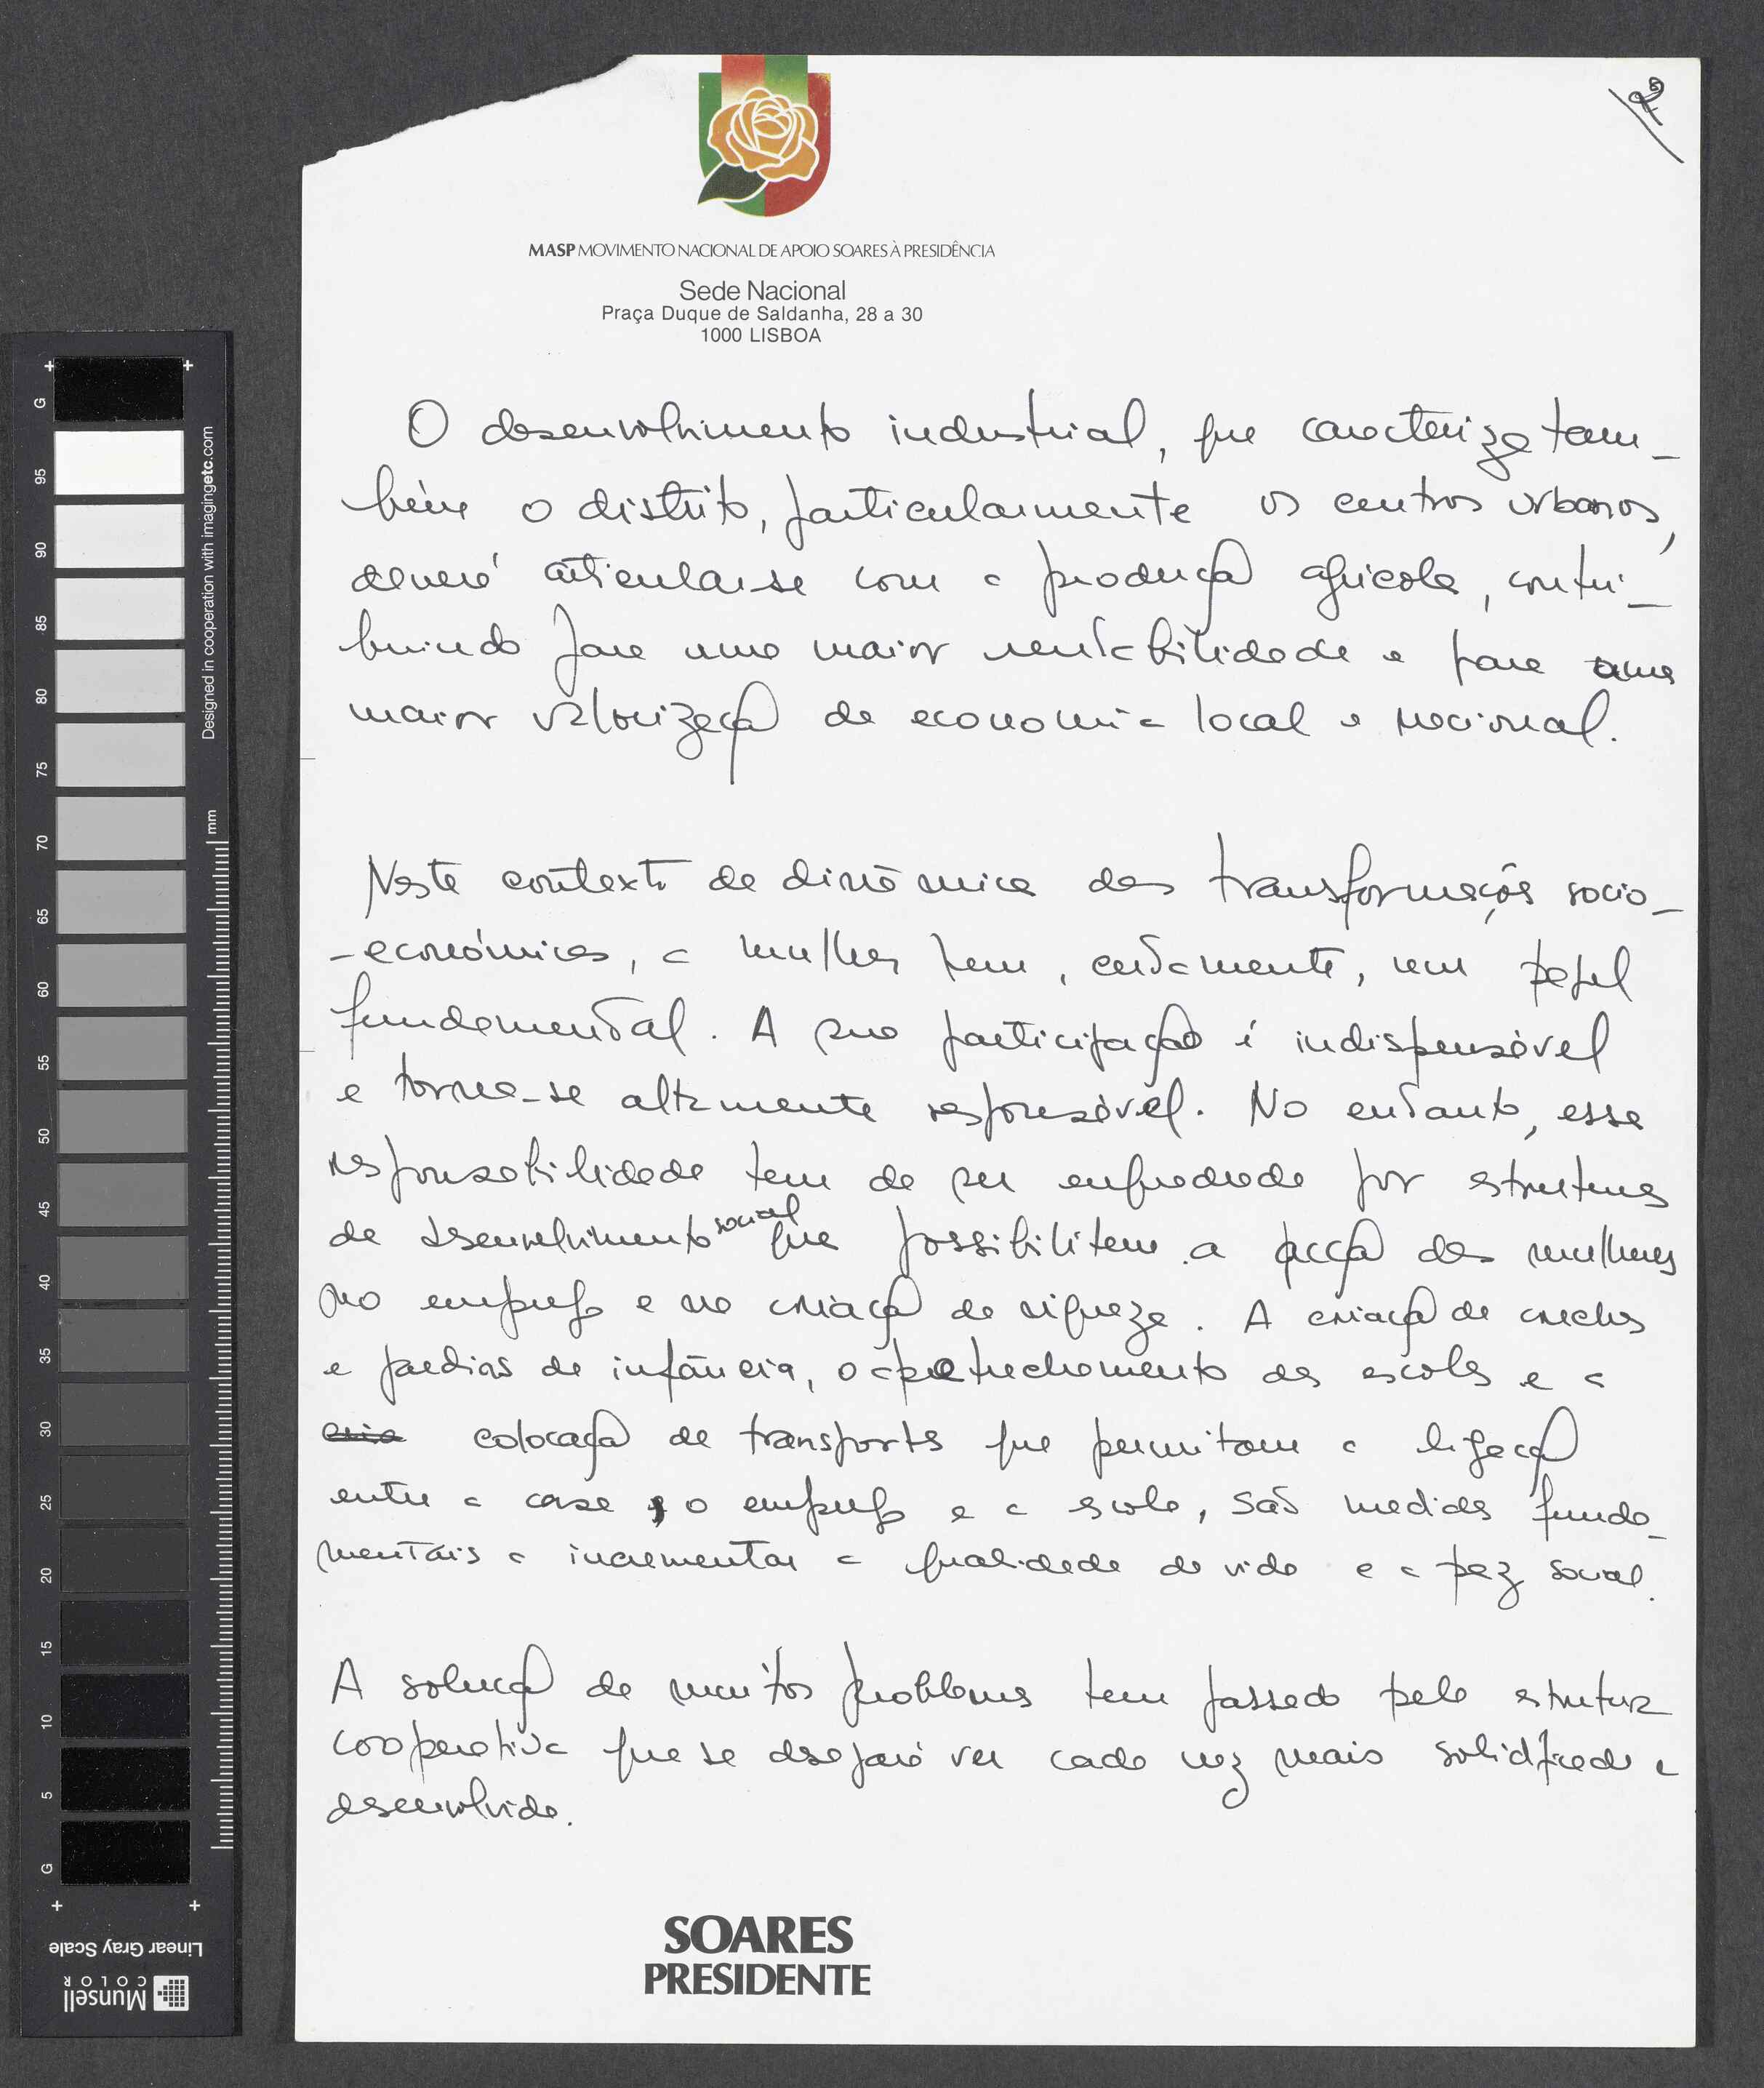 2
MASP MOVIMENTO NACIONAL DE APOIO SOARES À PRESIDÊNCIA
Sede Nacional
Praça Duque de Saldanha, 28 a 30
1000 LISBOA
O desenvolvimento industrial, que caracteriza tam-
bém o distrito, particularmente os centros urbanos,
deverá articular-se com a produção agrícola, contri-
buindo para uma maior rentabilidade e para uma
maior valorização da economia local e nacional.
Neste contexto de dinâmica das transformações socio-
-económicas, a mulher tem, certamente, um papel
fundamental. A sua participação é indispensável
e torna-se altamente responsável. No entanto, essa
responsabilidade tem de ser enquadrada por estruturas
de desenvolvimento social que possibilitem a acção das mulheres
no emprego e na criação de riqueza. A criação de creches
e jardins de infância, o apetrechamento das escolas e a
cria colocação de transportes que permitam a ligação
entre a casa, o emprego e a escola, são medidas funda-
mentais a incrementar a qualidade de vida e a paz social.
A solução de muitos problemas tem passado pela estrutura
cooperativa que se desejará ver cada vez mais solidificada e
desenvolvida.
SOARES
PRESIDENTE
G
95
90
85
80
75
70
65
60
55
50
45
40
35
30
25
20
15
10
5
G
Designed in cooperation with imagingetc.com
mm
Linear Gray Scale
Munsell
COLOR